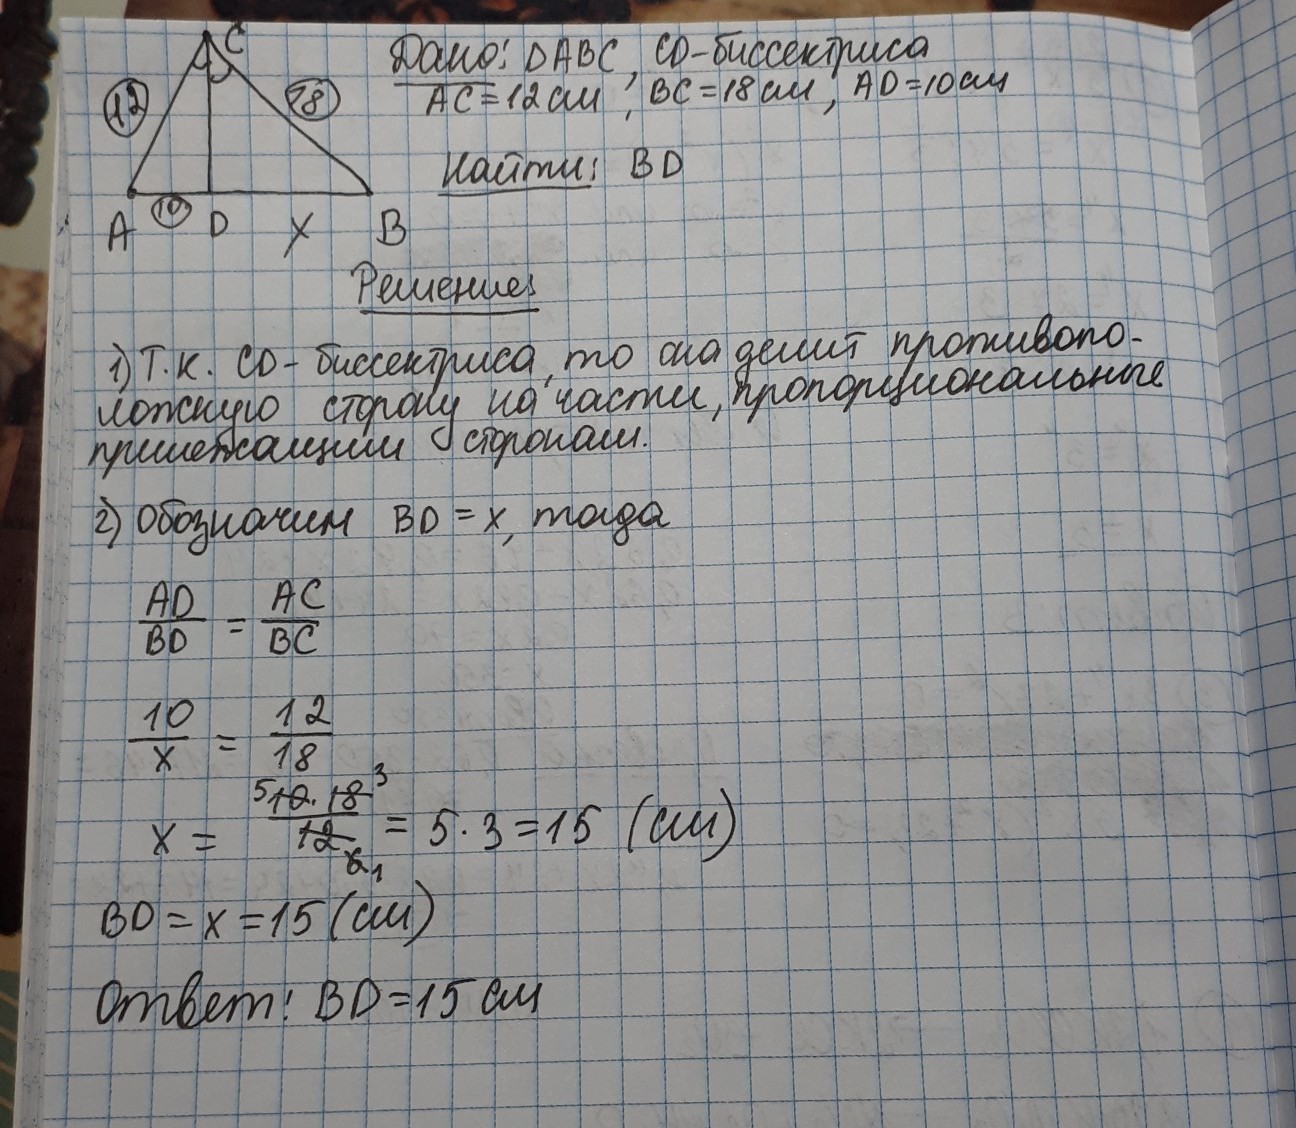 C
12
18
A 10 D X B
Дано: DABC, CD-биссектриса
AC=12см, BC=18см, AD=10см
Найти: BD
Решение:
1) Т.к. CD-биссектриса, то она делит противопо-
ложную сторону на части, пропорциональные
прилежащим сторонам.
2) Обозначим BD = x, тогда
AD/BD = AC/BC
10/x = 12/18
x = 5 10·18 3 / 12 6 1 = 5·3=15 (см)
BD = x = 15 (см)
Ответ: BD=15см